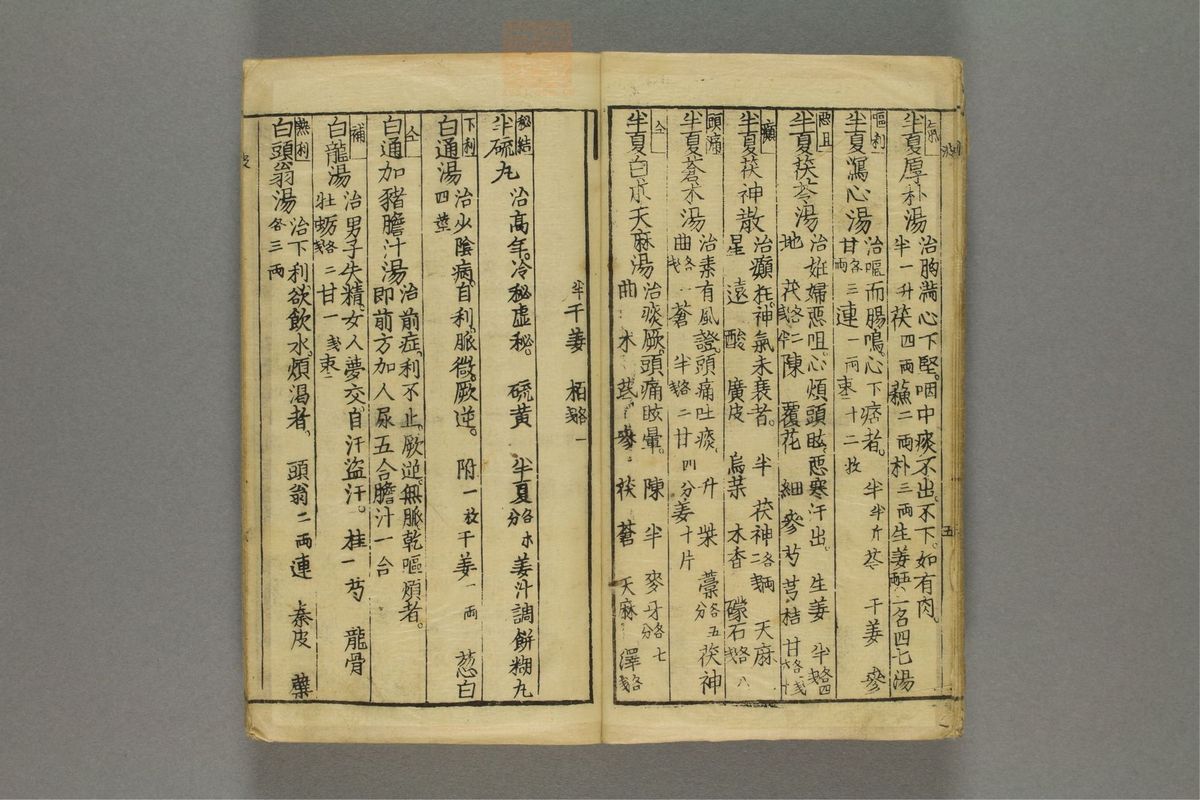 氣
半夏厚朴湯 治胸満心下堅。咽中痰不出。不下。如有肉。
半一升茯四両蘓二両朴三両生姜五両一名四七湯
嘔利
半夏瀉心湯 治嘔而腸鳴。心下痞者。 半半斤芩 干姜 參
甘各三両連一両棗十二枚
悪阻
半夏茯苓湯 治妊婦悪阻。心煩頭眩。悪寒汗出。 生姜 半
地 茯 陳 覆花 細 參 芎 芍 桔 甘
癲
半夏茯神散 治癲狂。神氣未衰者。 半 茯神 天麻
星 遠 酸 廣皮 烏薬 木香 礞石各八
頭痛
半夏蒼朮湯 治素有風證。頭痛吐痰。 升 柴 藁各五分茯神
曲各一 蒼 半各二甘四分姜十片
仝
半夏白朮天麻湯 治痰厥。頭痛眩暈。 陳 半 麥牙各七分
曲 朮 芪 參 茯 蒼 天麻 澤
五
半 干姜 栢各一
秘結
半硫丸 治高年。冷秘虚秘。 硫黄 半夏各分 姜汁調餅糊丸
下利
白通湯 治少陰病。自利。脈微。厥逆。 附一枚干姜一両 葱白
四莖
仝
白通加豬膽汁湯 治前症。利不止。厥逆。無脈乾嘔煩者。
即前方加人尿五合膽汁一合
補
白龍湯 治男子失精。女人夢交自汗盗汗。 桂一 芍 龍骨
牡蛎各二甘一 棗二
熱利
白頭翁湯 治下利。欲飲水。煩渇者。 頭翁二両連 秦皮 蘗
各三両